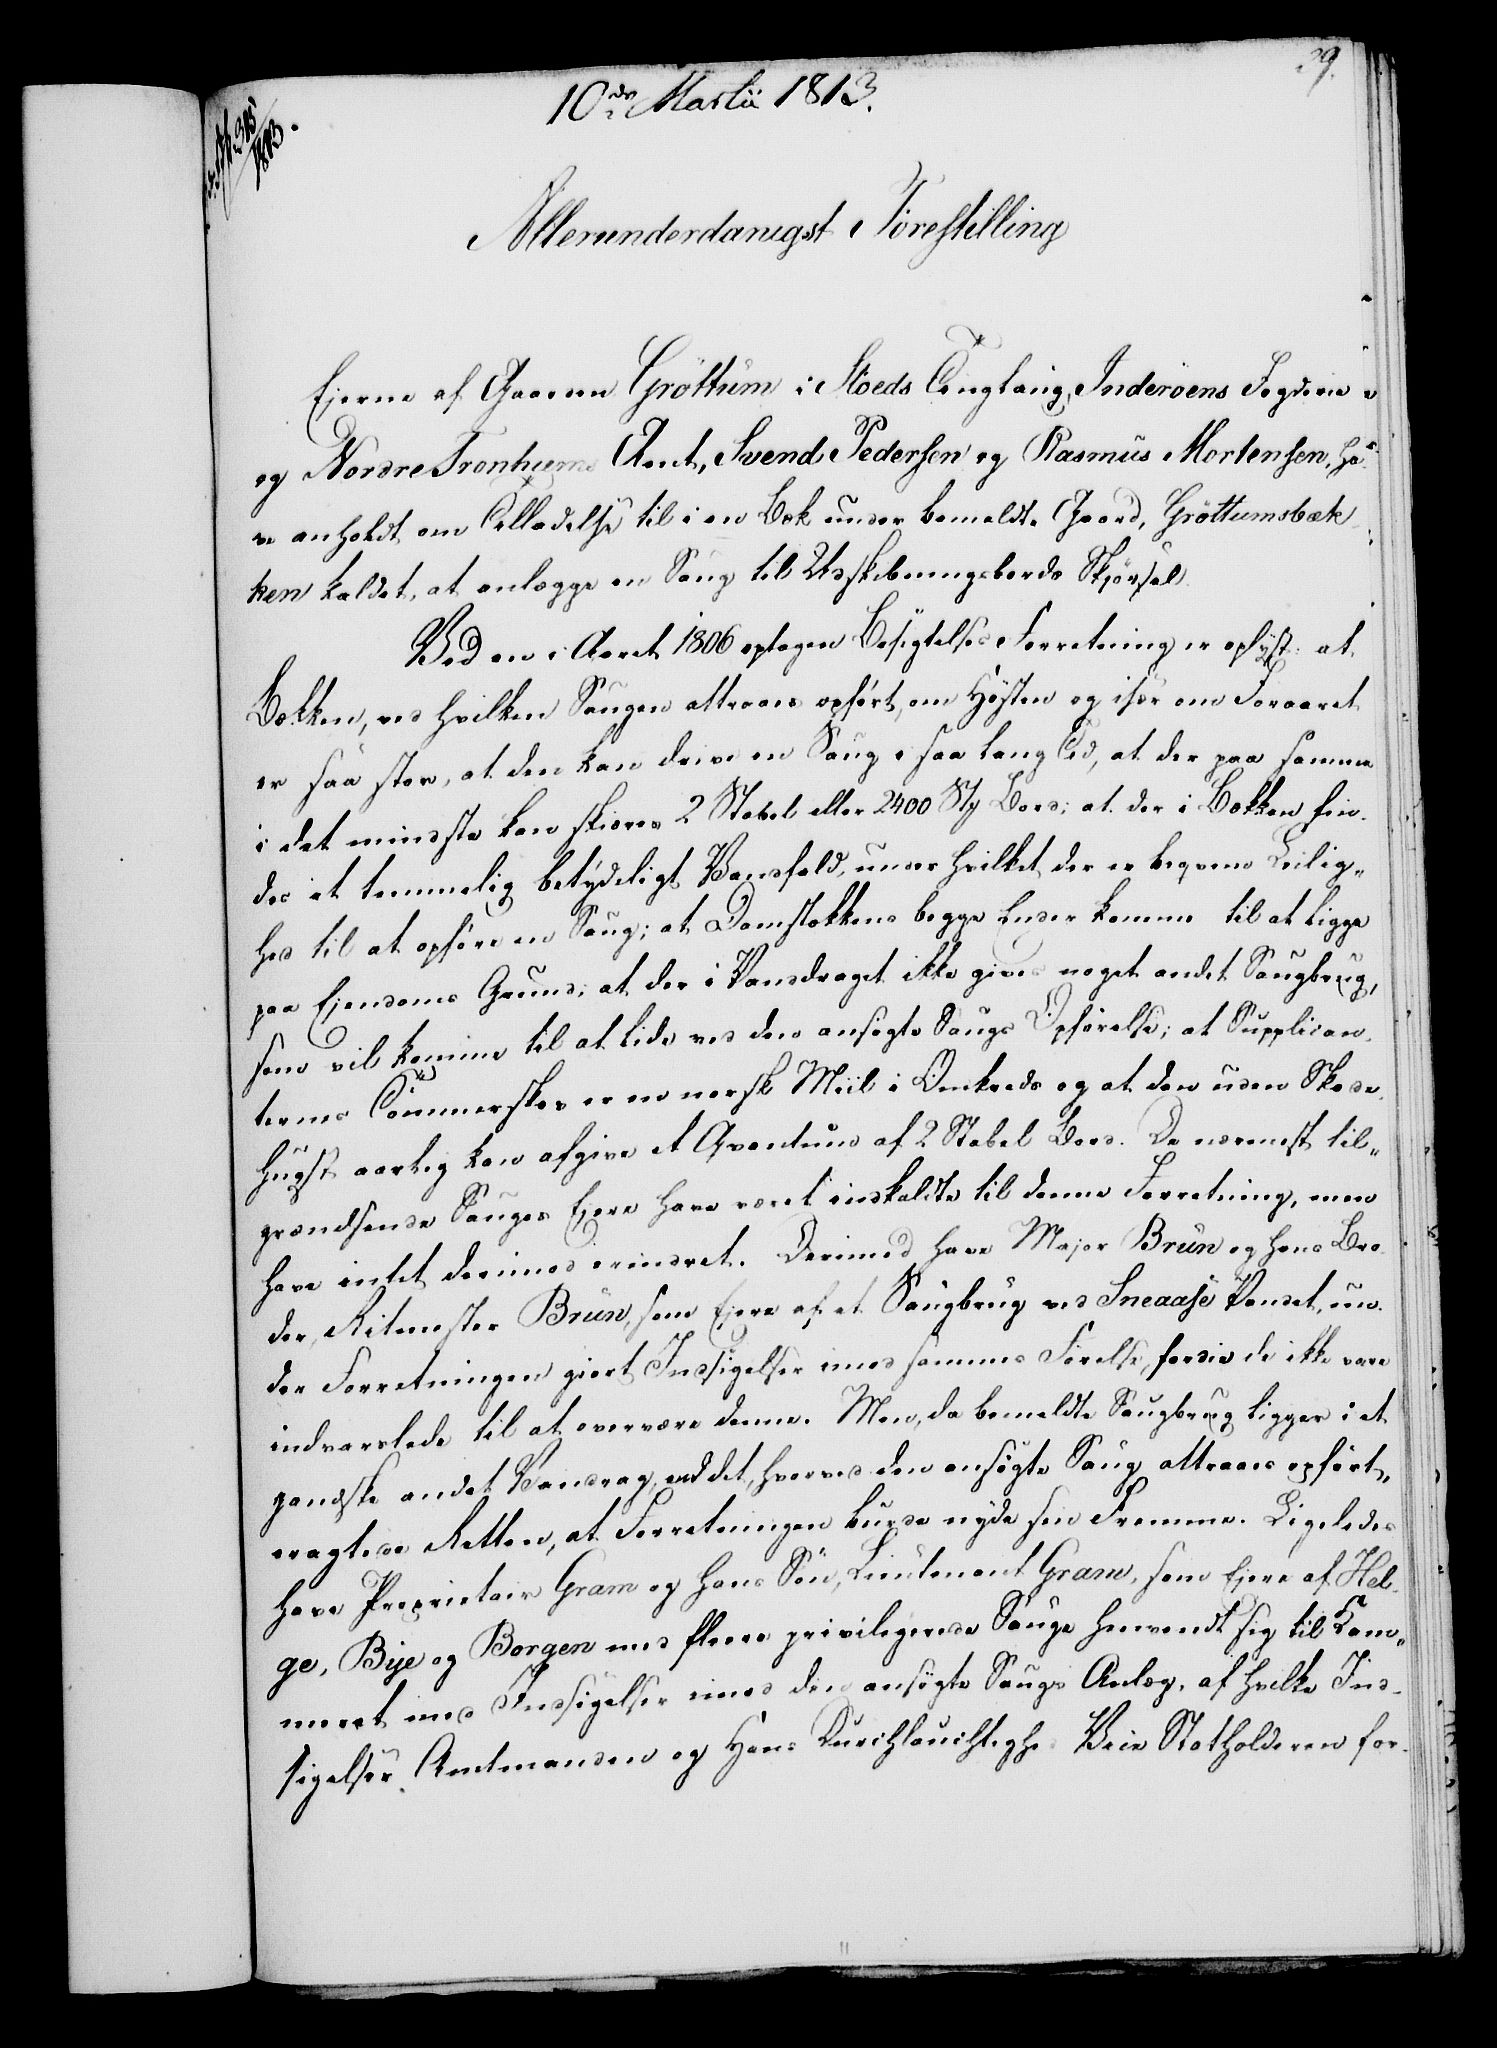 29.
10de Martii 1813.
315
1813.
Allerunderdanigst Forestilling
Ejerne af Gaarden Gröttum i Stoeds Tinglaug, Inderöens Fogderie
og Nordre Tronhiems Amt, Svend Pedersen og Rasmus Mortensen, ha-
ve anholdt om Tilladelse til i en Bæk under bemeldte Gaard, Gröttumsbæk
ken kaldet, at anlægge en Saug til Udskibningsbords Skjørsel.
Ved en i Aaret 1806 optagen Besigtelses Forretning er oplÿst: at
Bækken, ved hvilken Saugen attraaes opfört, om Hösten og især om Foraaret
er saa stor, at den kan drive en Saug i saa lang Tid, at der paa samme
i det mindste kan skiæres 2 Stabel eller 2400 Stk Bord; at der i Bækken fin-
des et temmelig betÿdeligt Vandfald, under hvilket der er beqvem Leilig-
hed til at opföre en Saug; at Damstokkens begge Ender komme til at ligge
paa Ejendoms Grund; at der i Vandraget ikke gives noget andet Saugbrug,
som vil komme til at lide ved den ansögte Saugs Opförelse; at Supplican-
ternes Tömmerskov er en norsk Miil i Omkreds og at den uden Skove-
hugst aarlig kan afgive et Qvantum af 2 Stabel Bord. De nærmest til-
grændsende Sauges Ejere have været indkaldte til denne Forretning, men
have intet derimod erindret. Derimod have Major Brün og hans Bro-
der, Ritmester Brün, som Ejere af et Saugbrug ved Sneaase Vandet, un-
der Forretningen giort Indsigelser imod sammes Förelse, fordie de ikke vare
indvarslede til at overvære denne. Men, da bemeldte Saugbrug ligger i et
gandske andet Vandrag, end det, hvorved den ansögte Saug attraaes opfört,
eragtede Retten, at Forretningen burde nyde sin Fremme. Ligeledes
have Proprietair Gram og hans Sön, Lieutenant Gram, som Ejere af Hel-
ge, Bÿe og Borgen med flere privilegerede Sauge henvendt sig til Kam-
meret med Indsigelser imod den ansögte Saugs Anlæg, af hvilke Ind-
sigelser Amtmanden og Hans Durchlauchtighed Vice Statholderen for-